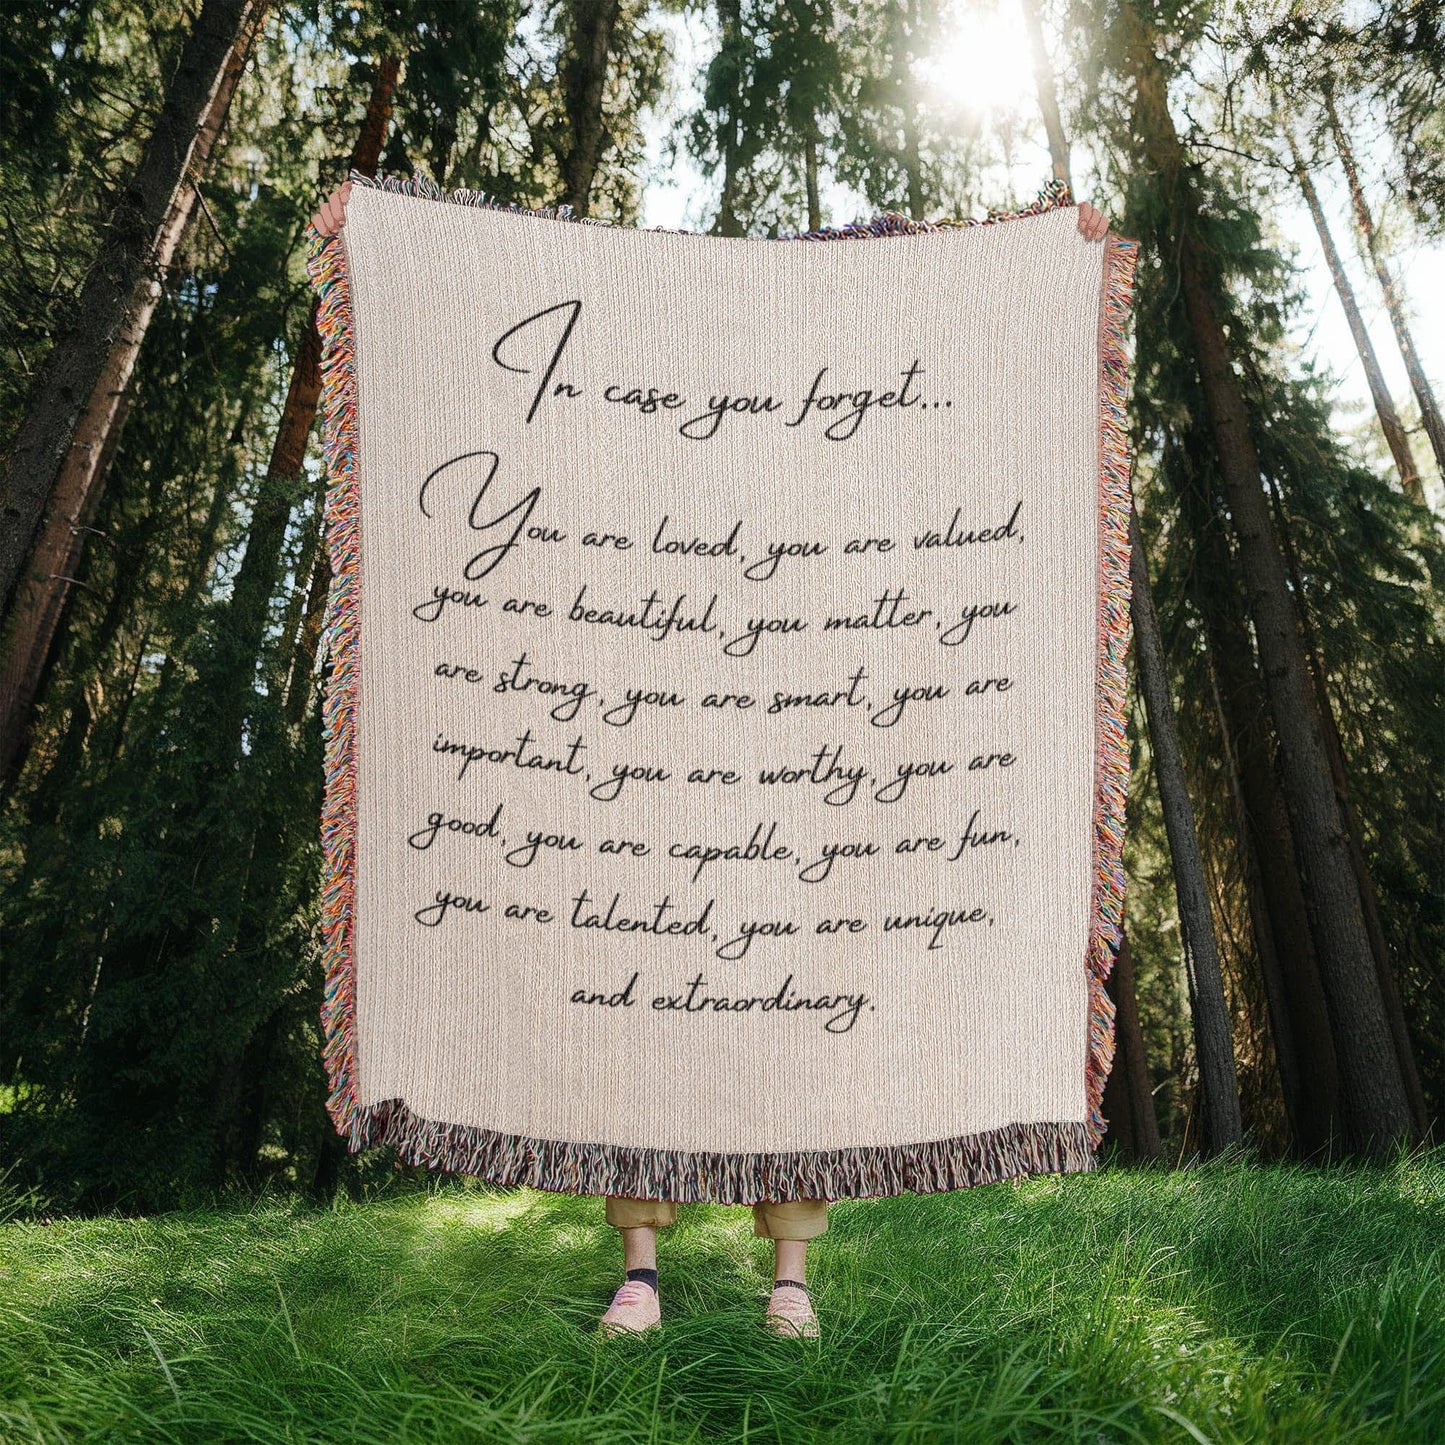 In case you forget...
You are loved, you are valued,
you are beautiful, you matter, you
are strong, you are smart, you are
important, you are worthy, you are
good, you are capable, you are fun,
you are talented, you are unique,
and extraordinary.